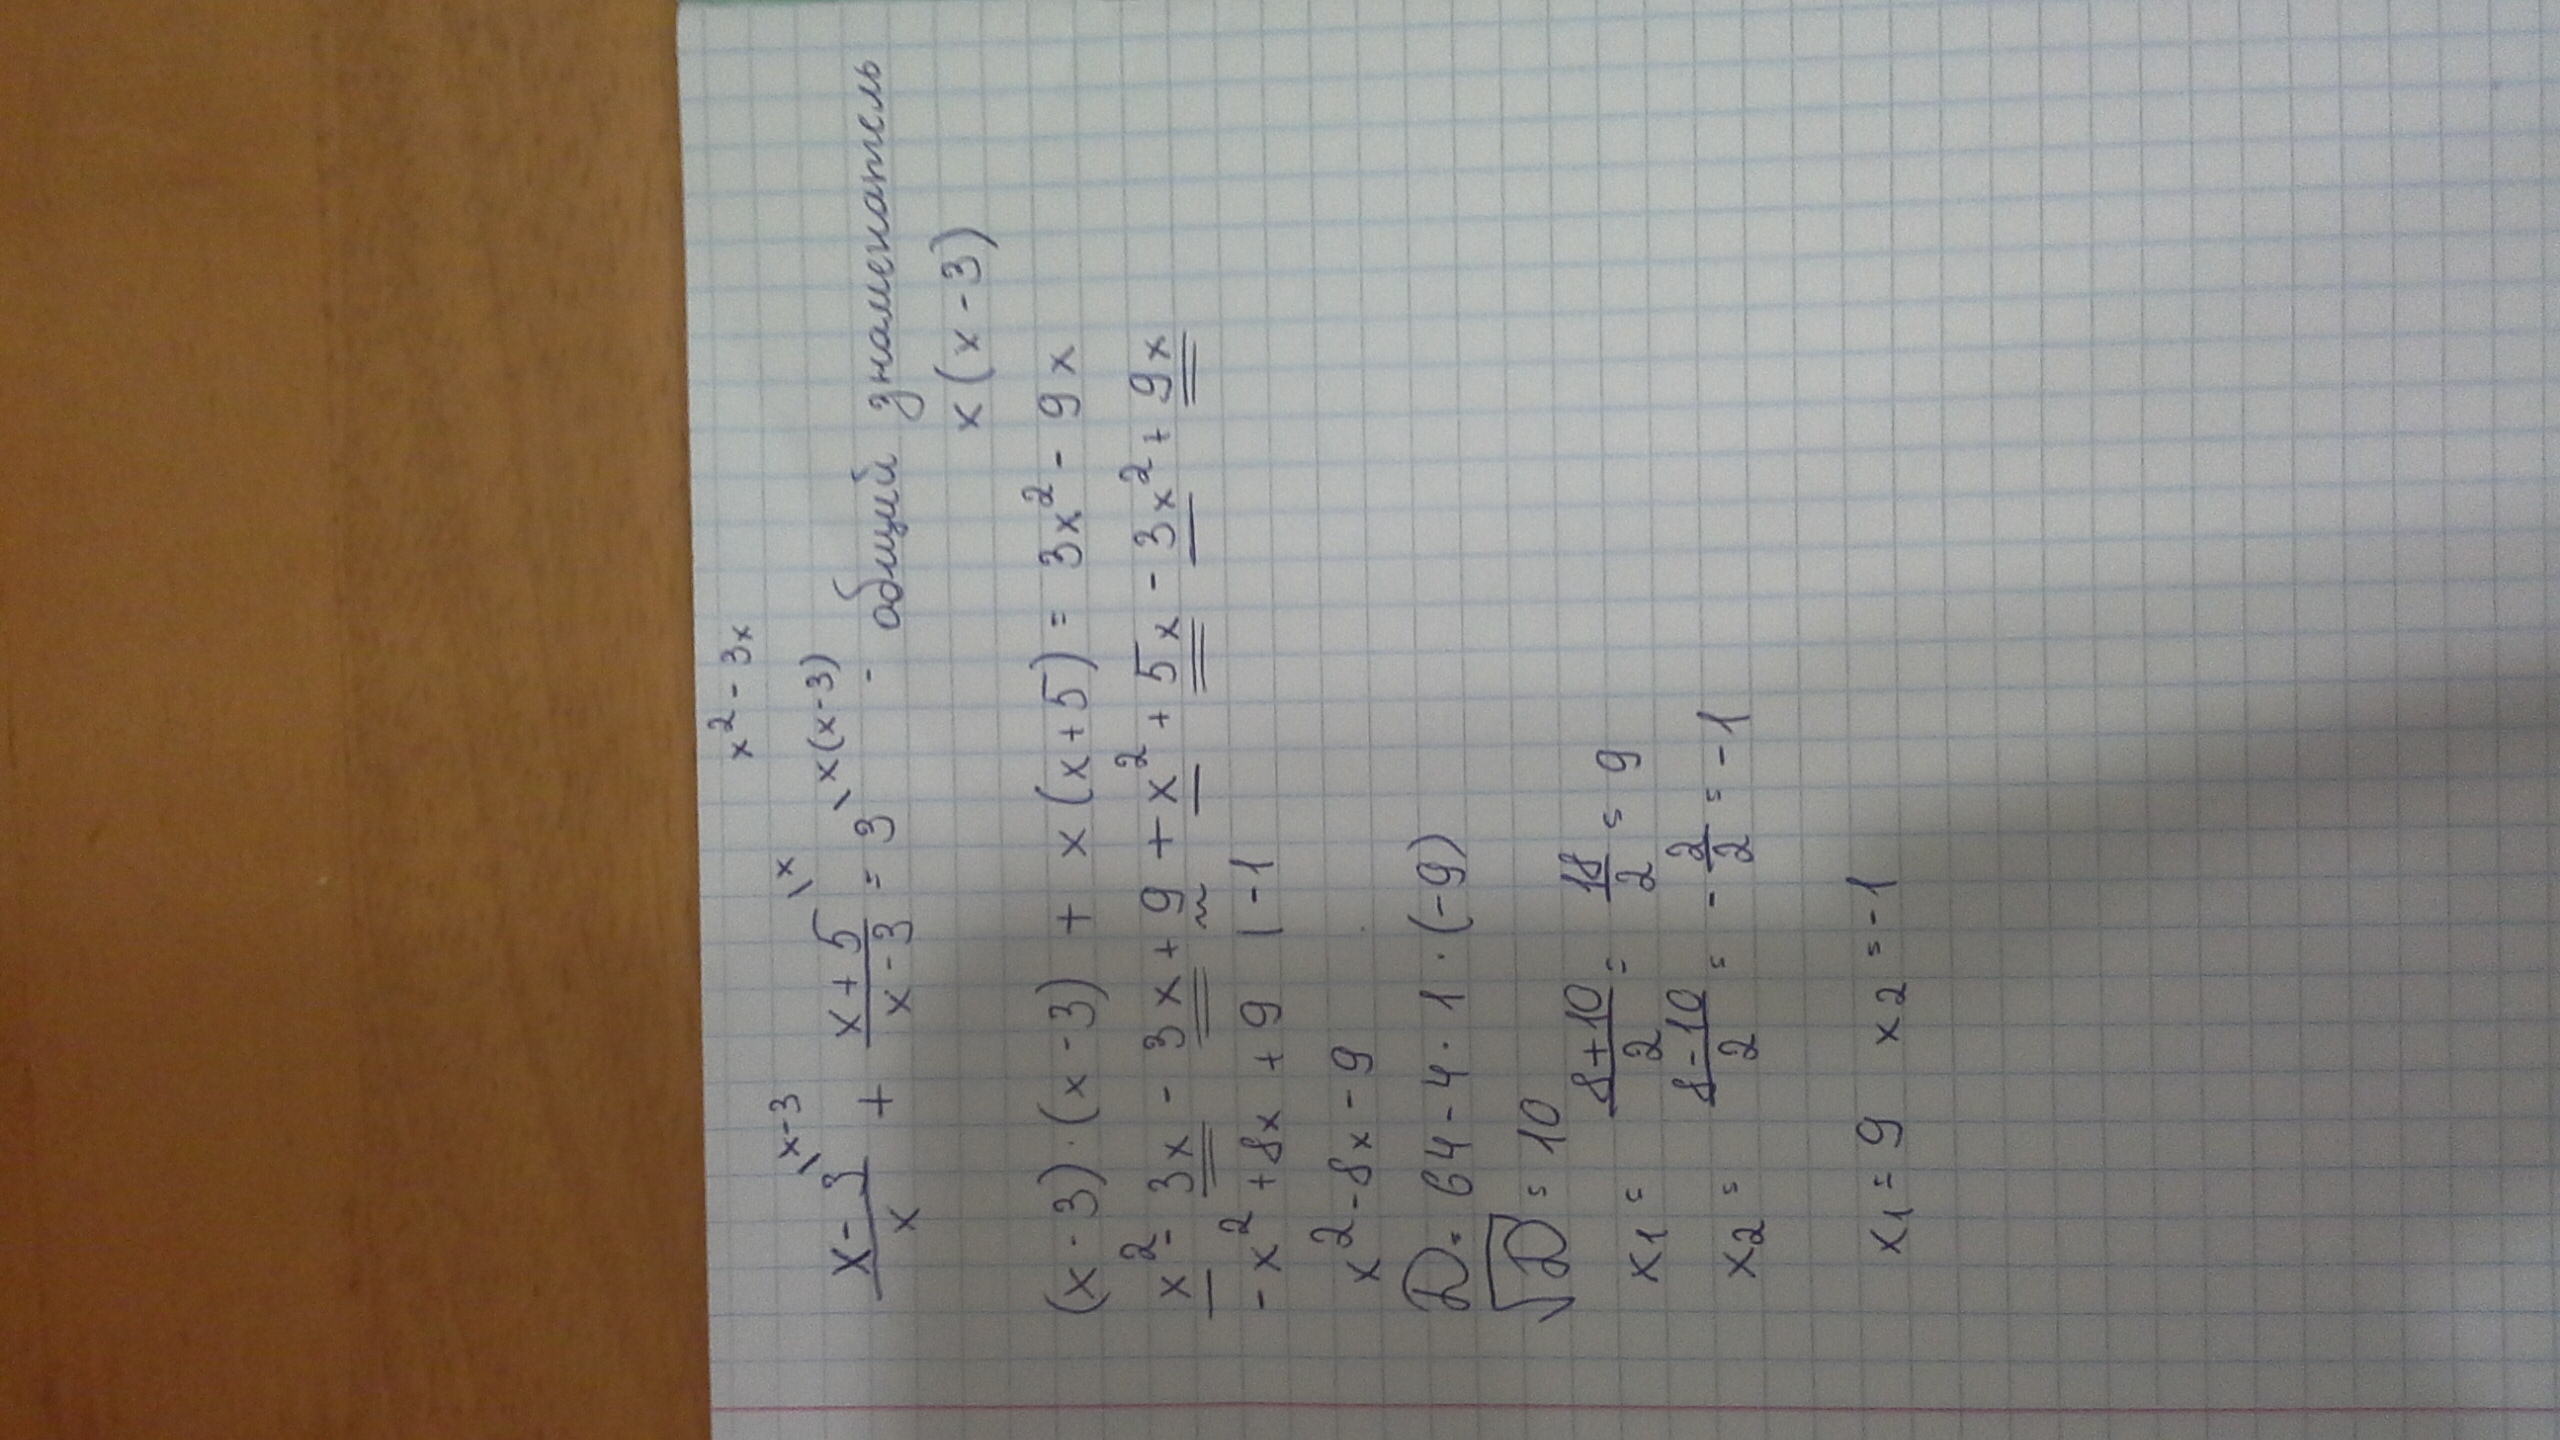 x² - 3x
x-3/x \x-3 + x+5/x-3 \x = 3 \x(x-3) - общий знаменатель
x(x-3)
(x-3)·(x-3) + x(x+5) = 3x² - 9x
x² - 3x - 3x + 9 + x² + 5x - 3x² + 9x
-x² + 8x + 9 | -1
x² - 8x - 9
D = 64 - 4·1·(-9)
√D = 10
x1 = 8+10/2 = 18/2 = 9
x2 = 8-10/2 = -2/2 = -1
x1 = 9 x2 = -1